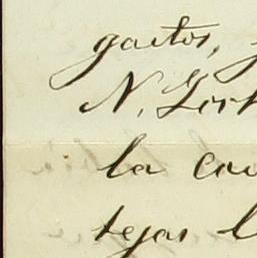 gastos,
N. York
la
tejas